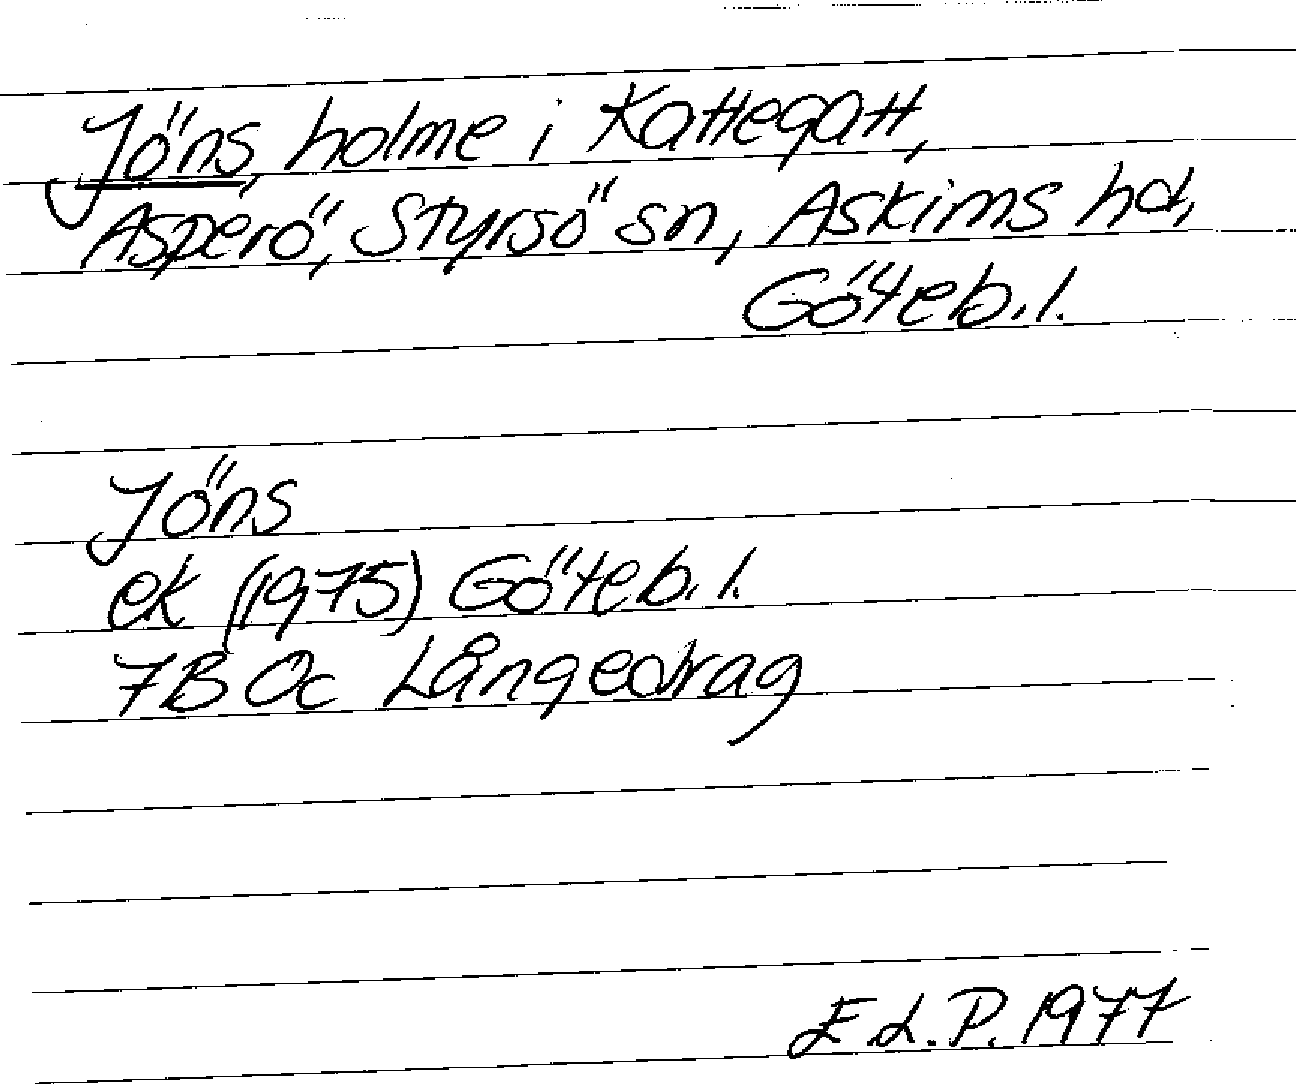 Jöns, holme i Kattegatt,
Asperö, Styrsö sn, Askims hd,
Göteb. l.
Jöns
ek (1975) Göteb. l.
7B 0c Långedrag
E.L.P. 1977